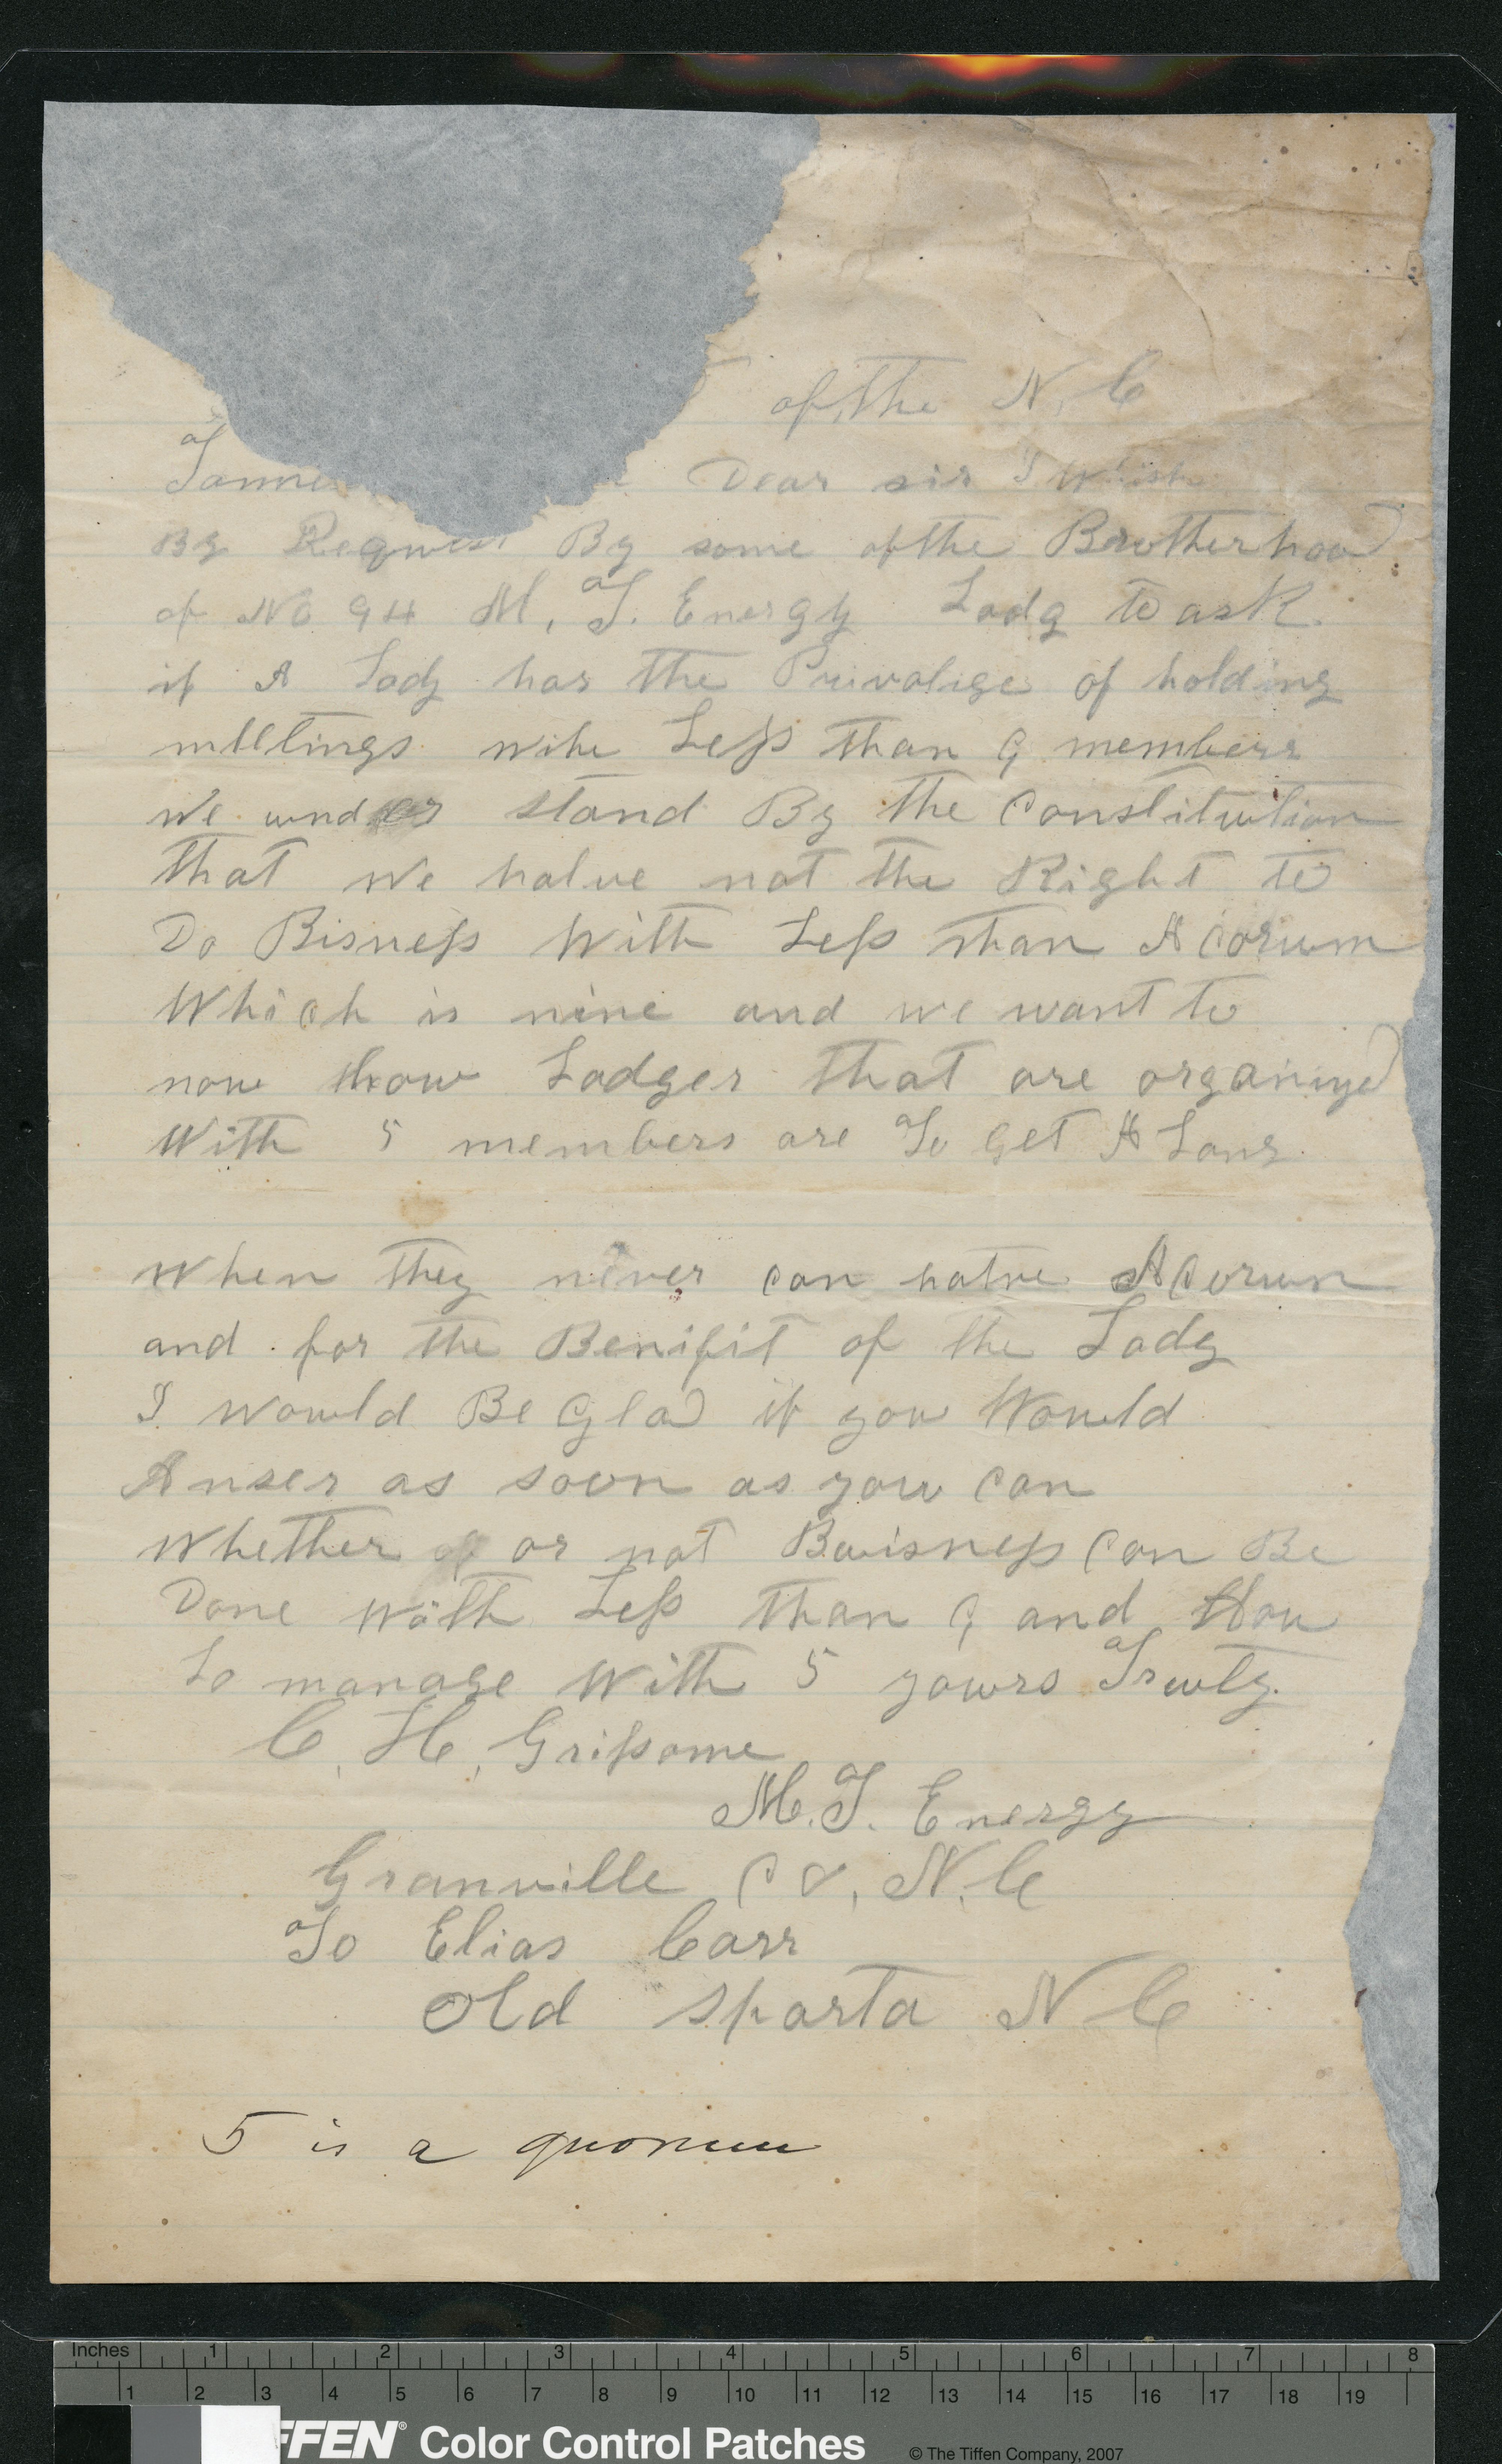 of the N. C
Dear sir I Whish
By Request By some of the Brotherhood
of No 94 M, T. Energy Lodg to ask
if A Lodg has the Privaliges of holding
meetings with Less than 9 members
we under stand By the Constitution
that we halve not the Right to
Do Bisness With Less than A Corum
Which is nine and we want to
now how Lodges that are organized
With 5 members are To Get A Long
When they never can halve A Corum
and for the Benifit of the Lodg
I would Be Glad if you Would
Anser as soon as you can
whether or not Buisness Can Be
Done with Less than 9 and How
to manage With 5 yours Truly.
C, H, Grissome
M. T. Energy
Granville Co, N. C
To Elias Carr
Old Sparta N C
5 is a quorum
Inches 1 2 3 4 5 6 7 8
1 2 3 4 5 6 7 8 9 10 11 12 13 14 15 16 17 18 19
FFEN® Color Control Patches © The Tiffen Company, 2007